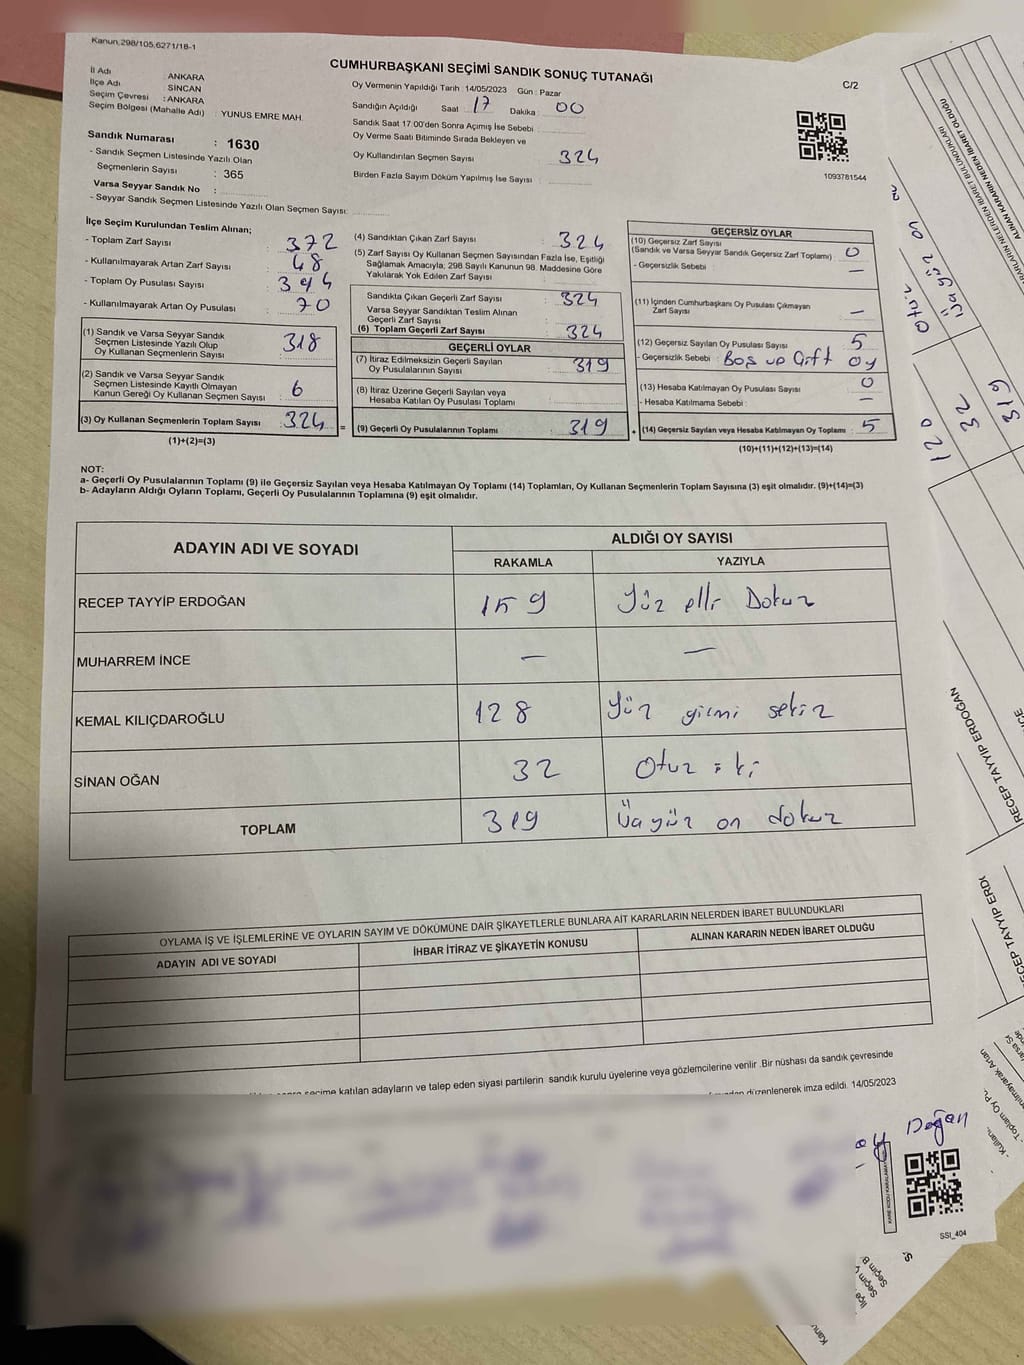 Kanun,298/105,6271/18-1
CUMHURBAŞKANI SEÇİMİ SANDIK SONUÇ TUTANAĞI
C/2
İl Adı : ANKARA
İlçe Adı : SİNCAN
Seçim Çevresi : ANKARA
Seçim Bölgesi (Mahalle Adı) : YUNUS EMRE MAH.
Sandık Numarası : 1630
- Sandık Seçmen Listesinde Yazılı Olan
Seçmenlerin Sayısı : 365
Varsa Seyyar Sandık No :
- Seyyar Sandık Seçmen Listesinde Yazılı Olan Seçmen Sayısı:
Oy Vermenin Yapıldığı Tarih : 14/05/2023 Gün : Pazar
Sandığın Açıldığı Saat 17 Dakika : 00
Sandık Saat 17.00'den Sonra Açımış İse Sebebi
Oy Verme Saati Bitiminde Sırada Bekleyen ve
Oy Kullandırılan Seçmen Sayısı : 324
Birden Fazla Sayım Döküm Yapılmış İse Sayısı :
1093781544
İlçe Seçim Kurulundan Teslim Alınan;
- Toplam Zarf Sayısı : 372
- Kullanılmayarak Artan Zarf Sayısı : 48
- Toplam Oy Pusulası Sayısı : 394
- Kullanılmayarak Artan Oy Pusulası : 70
(1) Sandık ve Varsa Seyyar Sandık
Seçmen Listesinde Yazılı Olup
Oy Kullanan Seçmenlerin Sayısı : 318
(2) Sandık ve Varsa Seyyar Sandık
Seçmen Listesinde Kayıtlı Olmayan
Kanun Gereği Oy Kullanan Seçmen Sayısı : 6
(3) Oy Kullanan Seçmenlerin Toplam Sayısı : 324 =
(1)+(2)=(3)
(4) Sandıktan Çıkan Zarf Sayısı : 324
(5) Zarf Sayısı Oy Kullanan Seçmen Sayısından Fazla İse, Eşitliği
Sağlamak Amacıyla; 298 Sayılı Kanunun 98. Maddesine Göre
Yakılarak Yok Edilen Zarf Sayısı :
Sandıkta Çıkan Geçerli Zarf Sayısı : 324
Varsa Seyyar Sandıktan Teslim Alınan
Geçerli Zarf Sayısı :
(6) Toplam Geçerli Zarf Sayısı : 324
GEÇERLİ OYLAR
(7) İtiraz Edilmeksizin Geçerli Sayılan
Oy Pusulalarının Sayısı : 319
(8) İtiraz Üzerine Geçerli Sayılan veya
Hesaba Katılan Oy Pusulası Toplamı :
(9) Geçerli Oy Pusulalarının Toplamı : 319 +
GEÇERSİZ OYLAR
(10) Geçersiz Zarf Sayısı
(Sandık ve Varsa Seyyar Sandık Geçersiz Zarf Toplamı) : 0
- Geçersizlik Sebebi : —
(11) İçinden Cumhurbaşkanı Oy Pusulası Çıkmayan
Zarf Sayısı : —
(12) Geçersiz Sayılan Oy Pusulası Sayısı : 5
- Geçersizlik Sebebi : Boş ve Çift oy
(13) Hesaba Katılmayan Oy Pusulası Sayısı : 0
- Hesaba Katılmama Sebebi : —
(14) Geçersiz Sayılan veya Hesaba Katılmayan Oy Toplamı : 5
(10)+(11)+(12)+(13)=(14)
NOT:
a- Geçerli Oy Pusulalarının Toplamı (9) ile Geçersiz Sayılan veya Hesaba Katılmayan Oy Toplamı (14) Toplamları, Oy Kullanan Seçmenlerin Toplam Sayısına (3) eşit olmalıdır. (9)+(14)=(3)
b- Adayların Aldığı Oyların Toplamı, Geçerli Oy Pusulalarının Toplamına (9) eşit olmalıdır.
ADAYIN ADI VE SOYADI ALDIĞI OY SAYISI
RAKAMLA YAZIYLA
RECEP TAYYİP ERDOĞAN 159 Yüz elli Dokuz
MUHARREM İNCE — —
KEMAL KILIÇDAROĞLU 128 Yüz yirmi sekiz
SİNAN OĞAN 32 Otuz iki
TOPLAM 319 Üçyüz on dokuz
OYLAMA İŞ VE İŞLEMLERİNE VE OYLARIN SAYIM VE DÖKÜMÜNE DAİR ŞİKAYETLERLE BUNLARA AİT KARARLARIN NELERDEN İBARET BULUNDUKLARI
ADAYIN ADI VE SOYADI İHBAR İTİRAZ VE ŞİKAYETİN KONUSU ALINAN KARARIN NEDEN İBARET OLDUĞU
seçime katılan adayların ve talep eden siyasi partilerin sandık kurulu üyelerine veya gözlemcilerine verilir .Bir nüshası da sandık çevresinde
düzenlenerek imza edildi. 14/05/2023
Doğan
KARE KODU KARALAMA
SSI_404
ALINAN KARARIN NEDEN İBARET OLDUĞU
Otuz
Üçyüz on
120
32
319
RECEP TAYYİP ERDOĞAN
RECEP TAYYİP ERDOĞAN